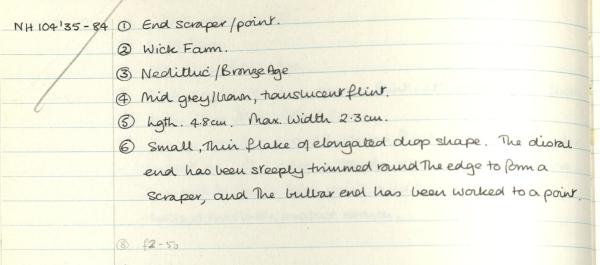 NH 104'35-84 ① End scraper/point.
② Wick Farm.
③ Neolithic/Bronze Age
④ Mid grey/brown, translucent flint.
⑤ Lgth. 4.8cm. Max. Width 2.3cm.
⑥ Small, thin flake of elongated drop shape. The distal
end has been steeply trimmed round the edge to form a
scraper, and the bulbar end has been worked to a point.
⑧ f2-50